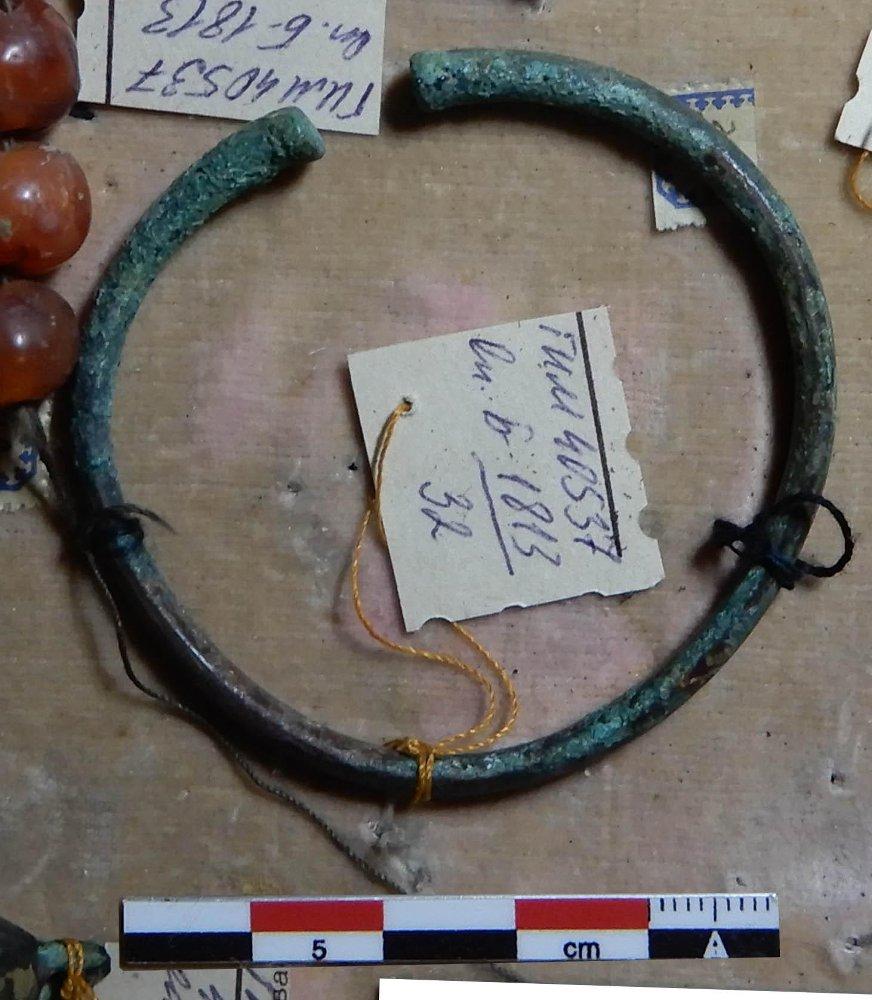 ГИМ 40537
оп. Б-1813
ГИМ 40537
оп. Б-1813
32
5 cm
ва